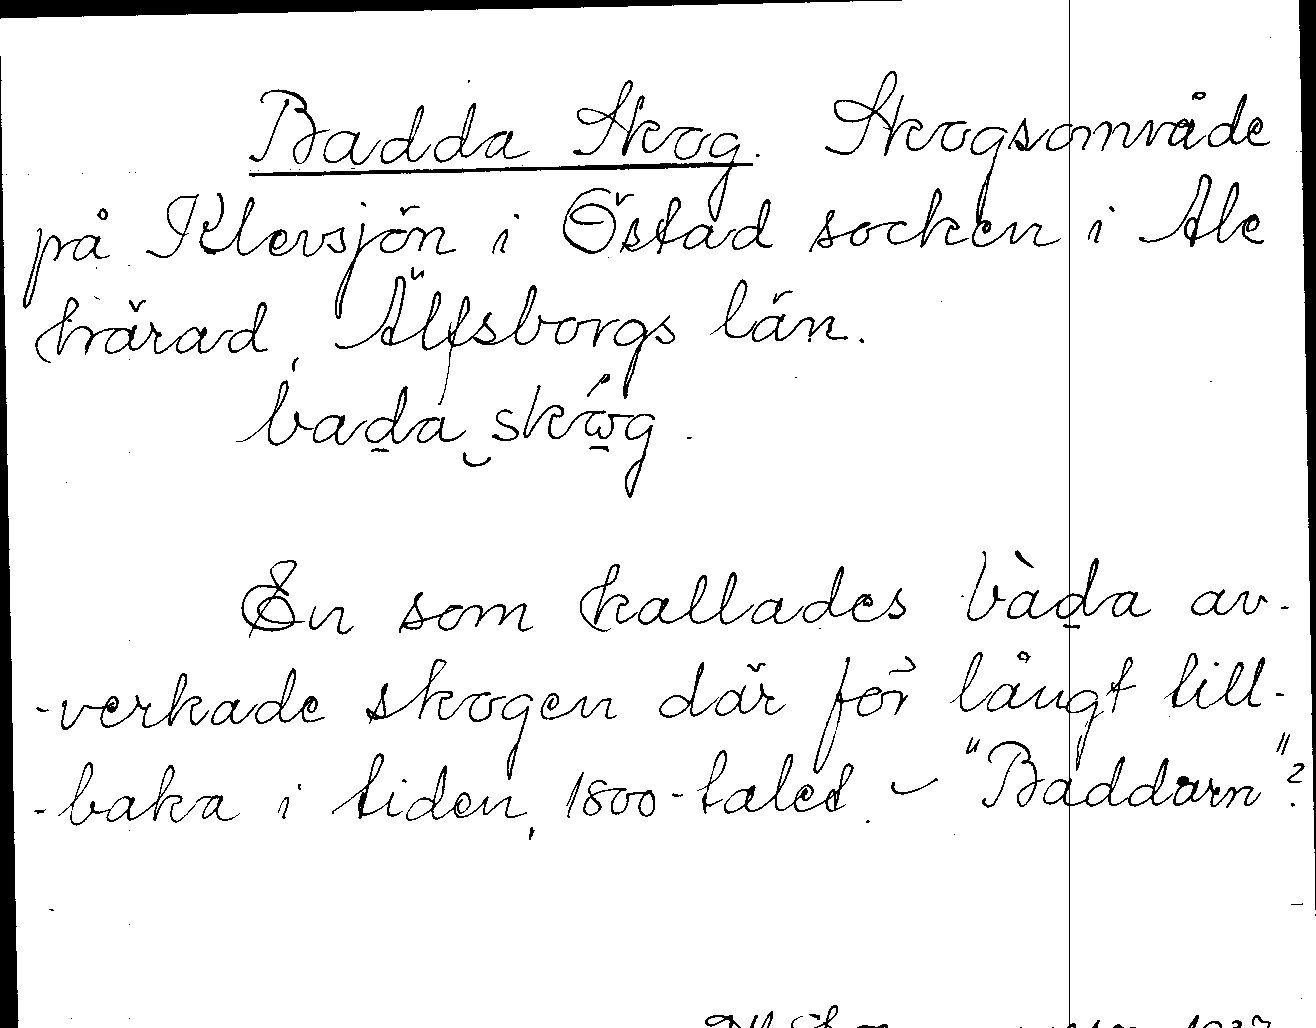 Badda Skog. Skogsområde
på Klevsjön i Östad socken i Ale
härad, Älfsborgs län.
bad̲a‿skǻ̲g.
En som kallades bàd̲a av-
-verkade skogen där för långt till-
-baka i tiden, 1800-talet. – "Baddarn"?